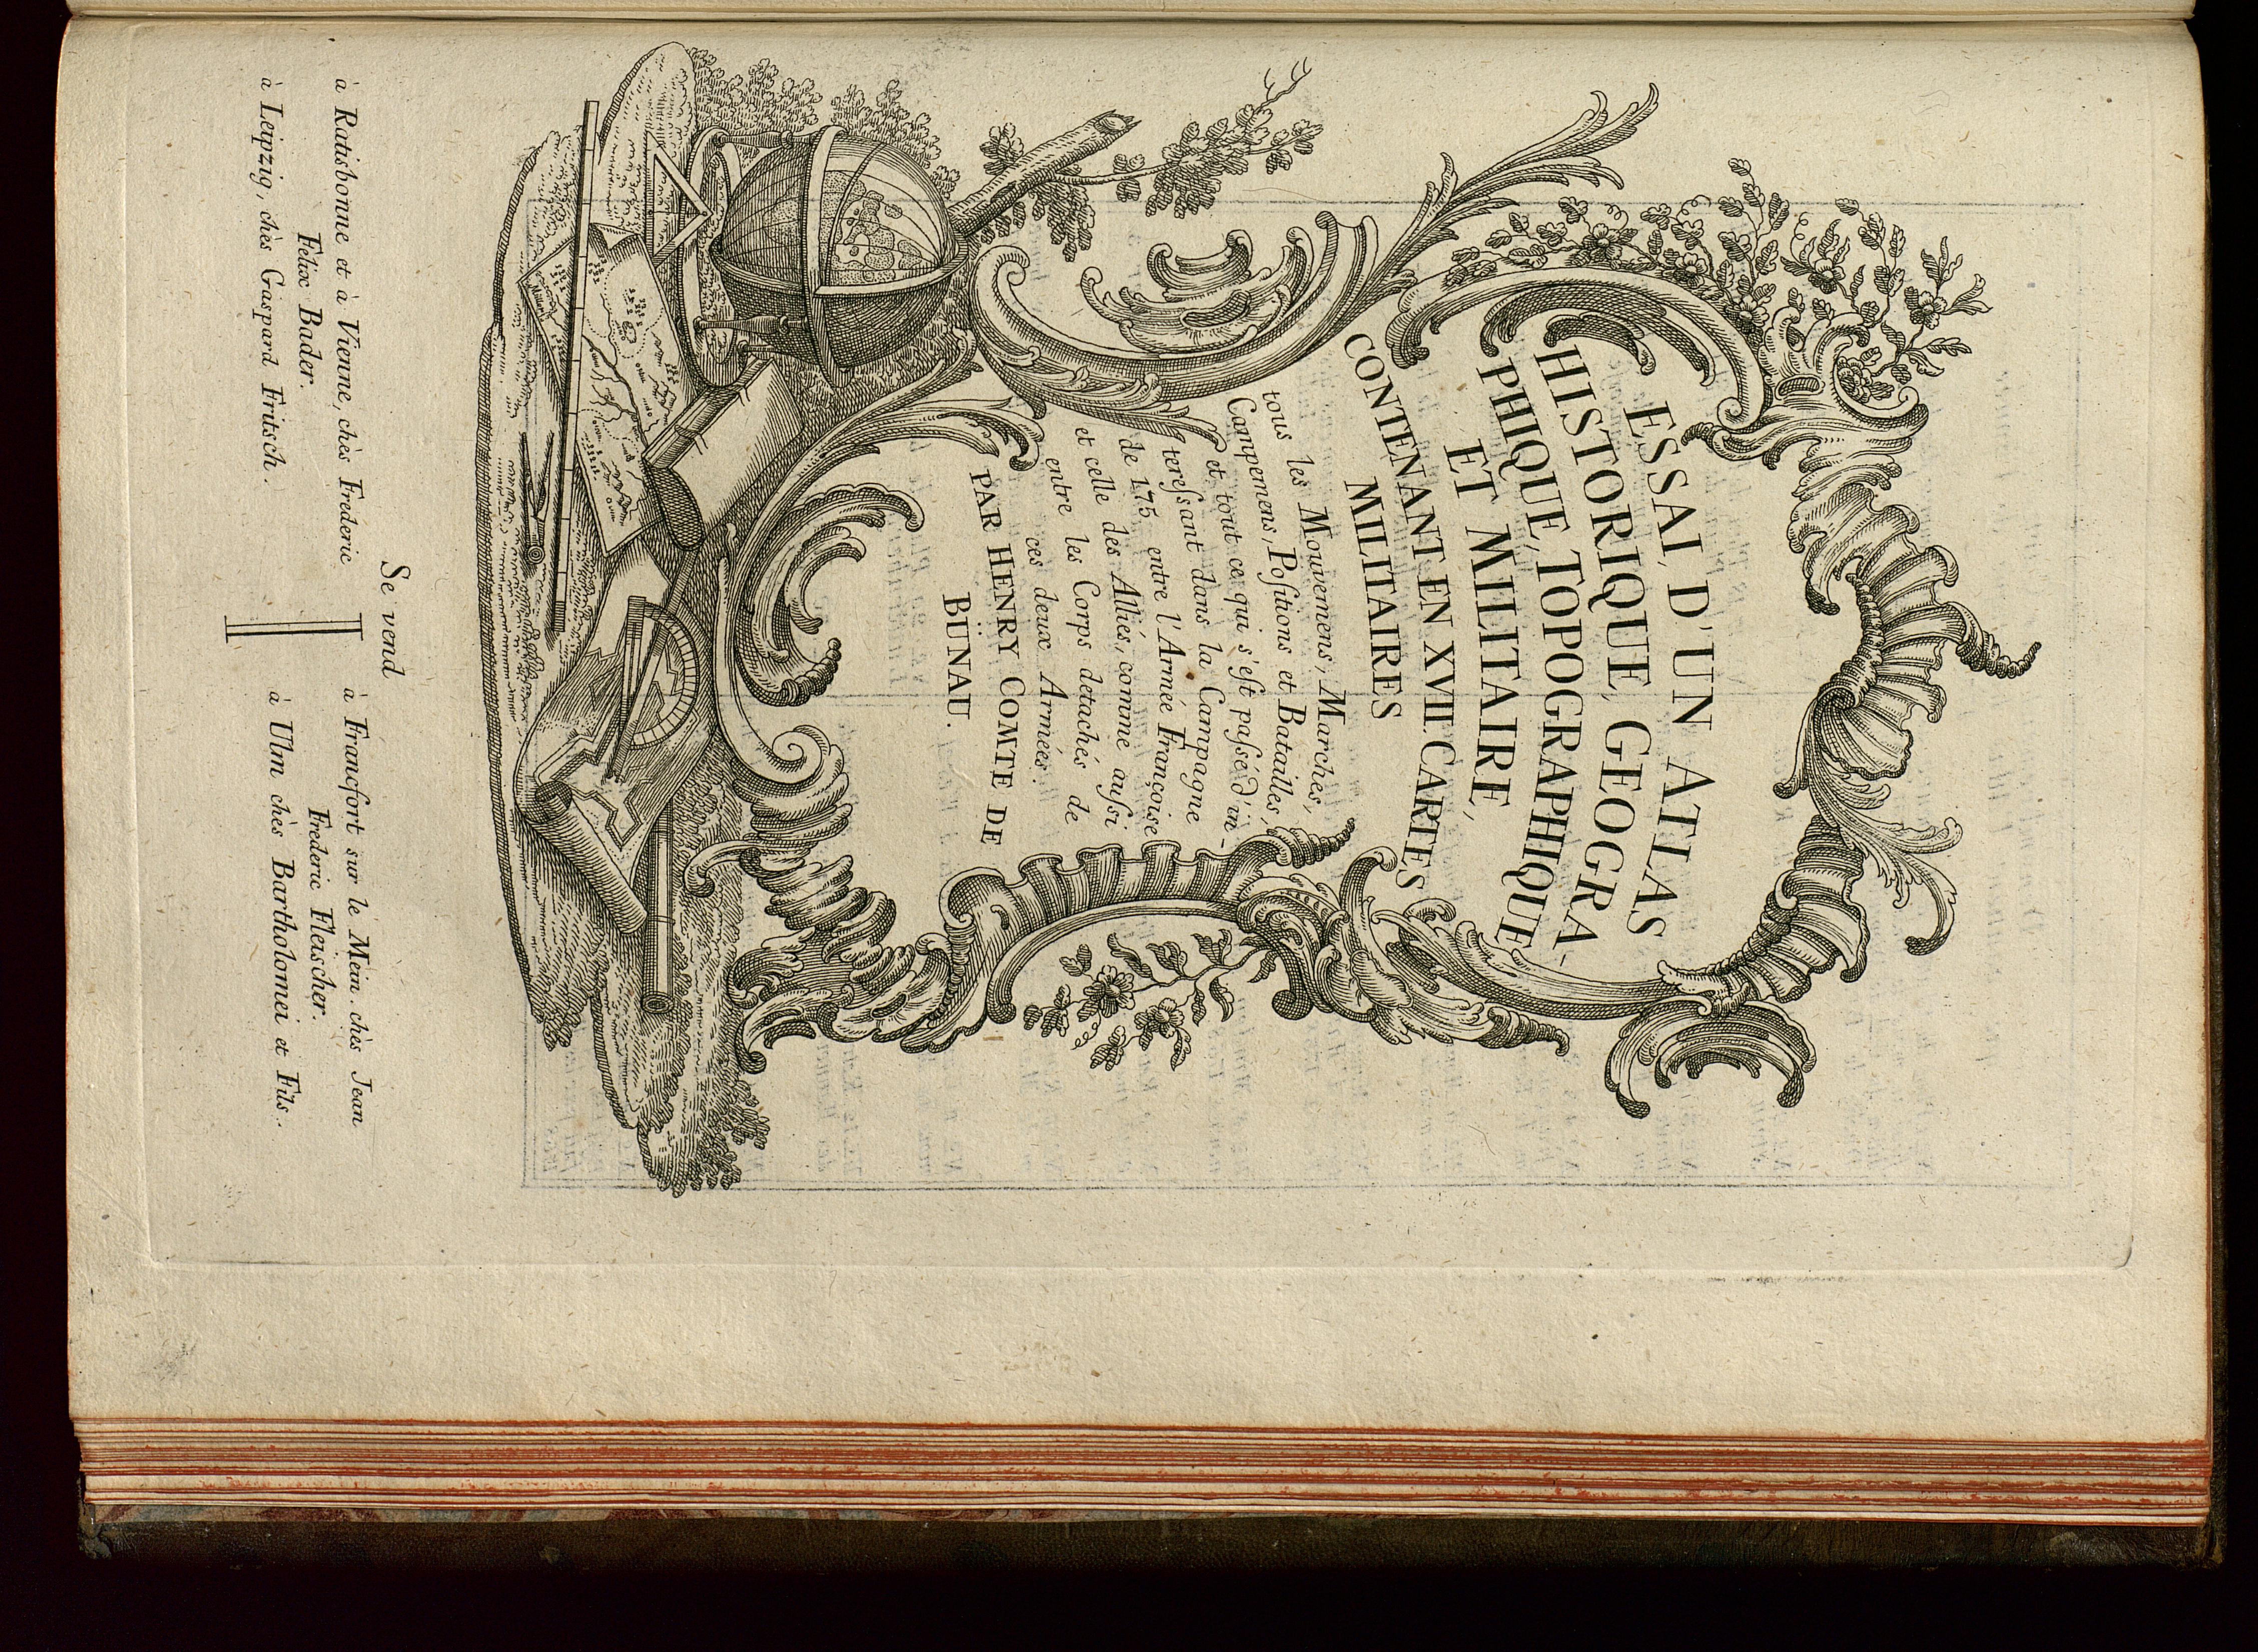 ESSAI, D'UN ATLAS
HISTORIQUE, GEOGRA-
PHIQUE, TOPOGRAPHIQUE
ET MILITAIRE,
CONTENANT EN XVII. CARTES
MILITAIRES
tous les Mouvemens, Marches,
Campemens, Poſitions et Batailles,
et tout ce qui s'eſt paſsé d'in-
tereſsant dans la Campagne
de 175 entre l'Armée Françoise
et celle des Alliés, comme auſsi
entre les Corps detachés de
ces deux Armées.
PAR HENRY COMTE DE
BÜNAU.
Se vend
à Ratisbonne et à Vienne, chès Frederic
Felix Bader.
à Leipzig, chès Gaspard Fritsch.
à Francfort sur le Mein chès Jean
Frederic Fleischer.
à Ulm chès Bartholomei et Fils.